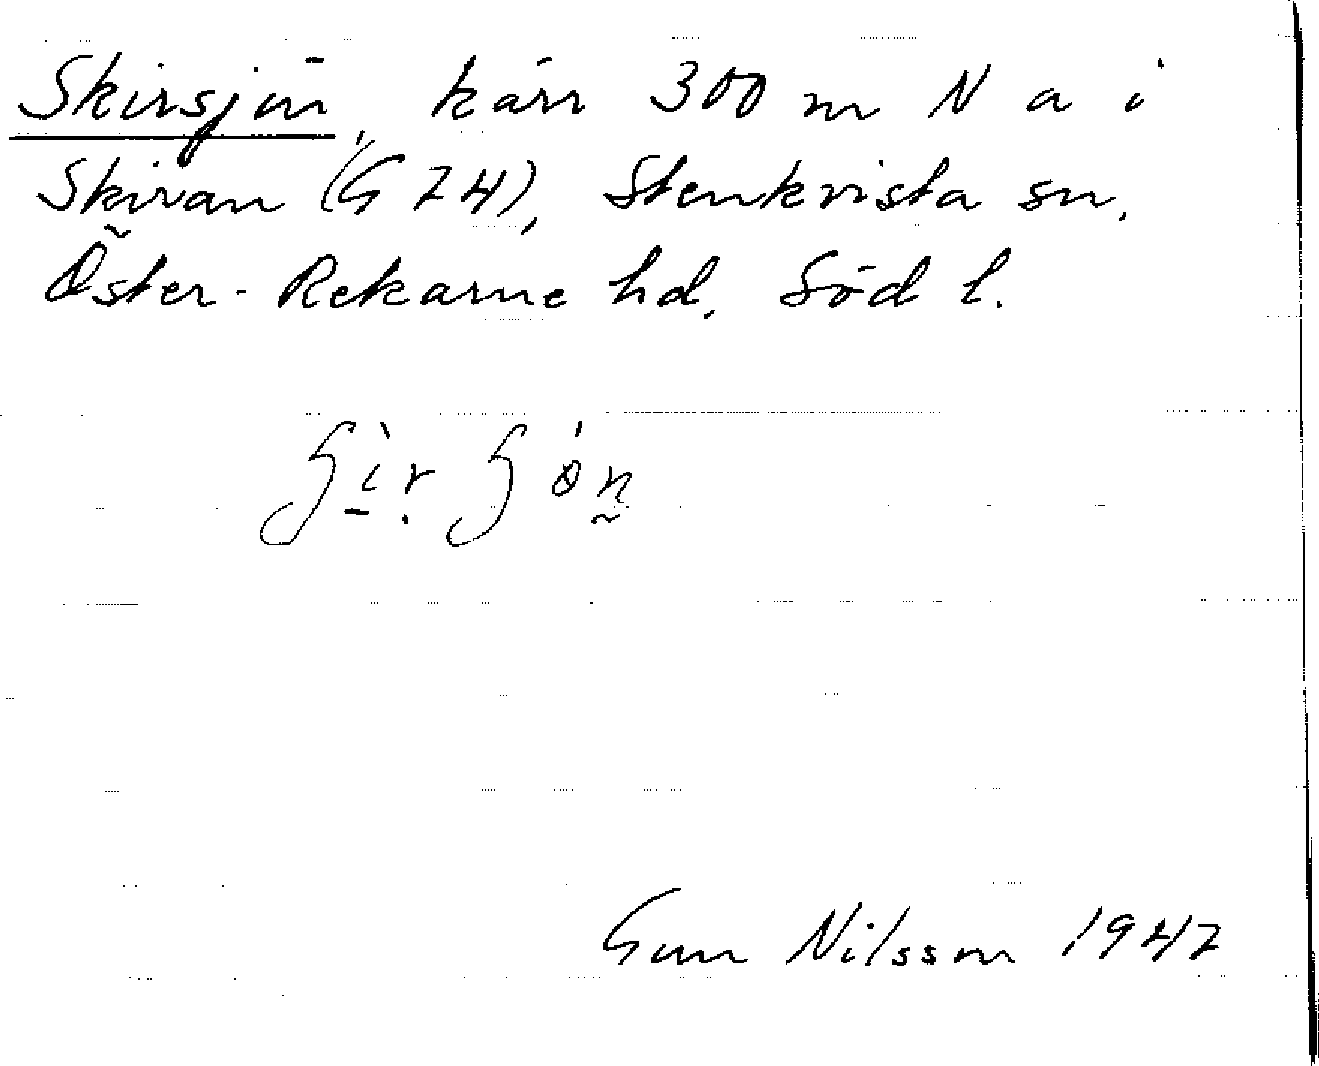 Skirsjön, kärr 300 m N a i
Skiran (G 74), Stenkvista sn,
Öster-Rekarne hd, Söd l.
Gun Nilsson 1947